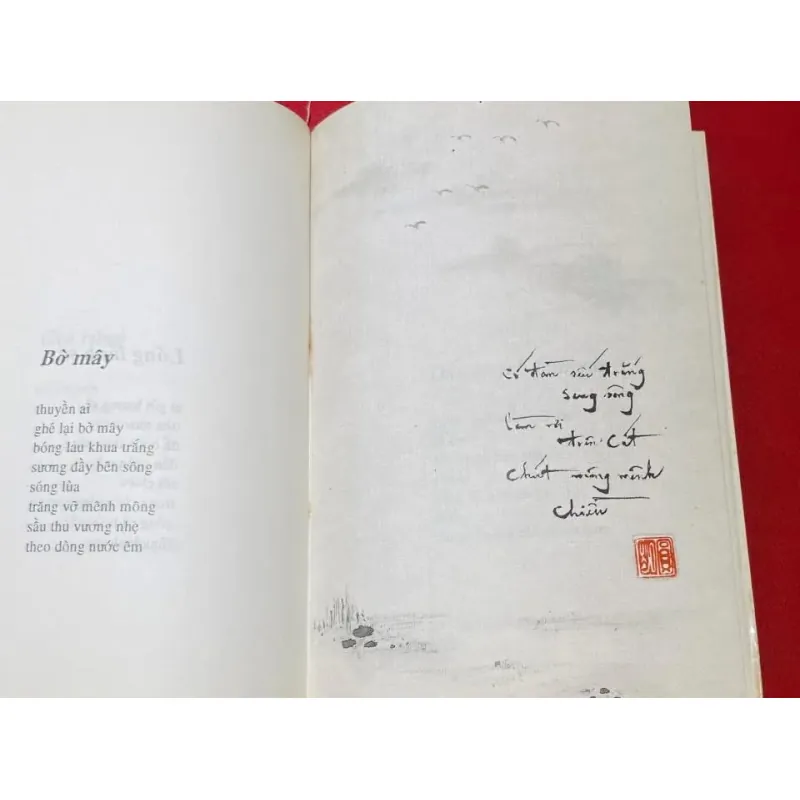 Bờ mây
thuyền ai
ghé lại bờ mây
bóng lau khua trắng
sương đầy bên sông
sóng lùa
trăng vỡ mênh mông
sầu thu vương nhẹ
theo dòng nước êm
Có đàn sếu trắng
sang sông
Làm rơi
trên cát
chút mông mênh
chiều